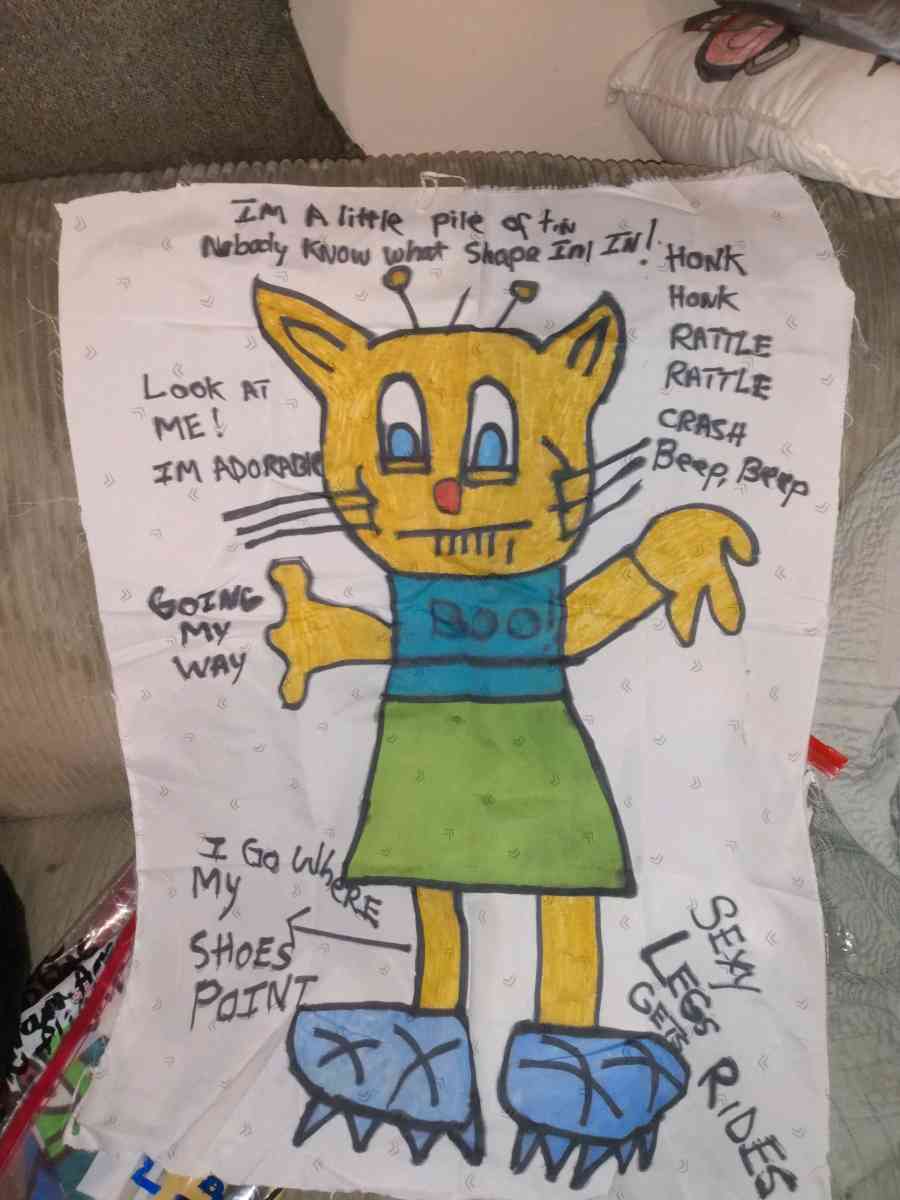 IM A little pile of tin
Nobody Know what Shape Im IN!
HONK
HONK
RATTLE
RATTLE
CRASH
Beep, Beep
LOOK AT
ME!
IM ADORABLE
BOO!
GOING
MY
WAY
I GO WHERE
MY
SHOES
POINT
SEXY
LEGS
GETS
RIDES